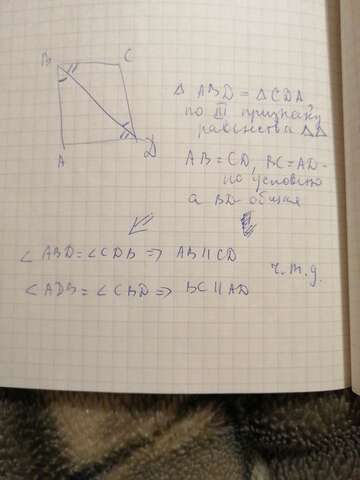 B
C
A
D
Δ ABD = Δ CDA
по III признаку
равенства ΔΔ
AB = CD, BC = AD -
по условию
а BD - общая
∠ ABD = ∠ CDB ⇒ AB || CD
∠ ADB = ∠ CBD ⇒ BC || AD
ч.т.д.